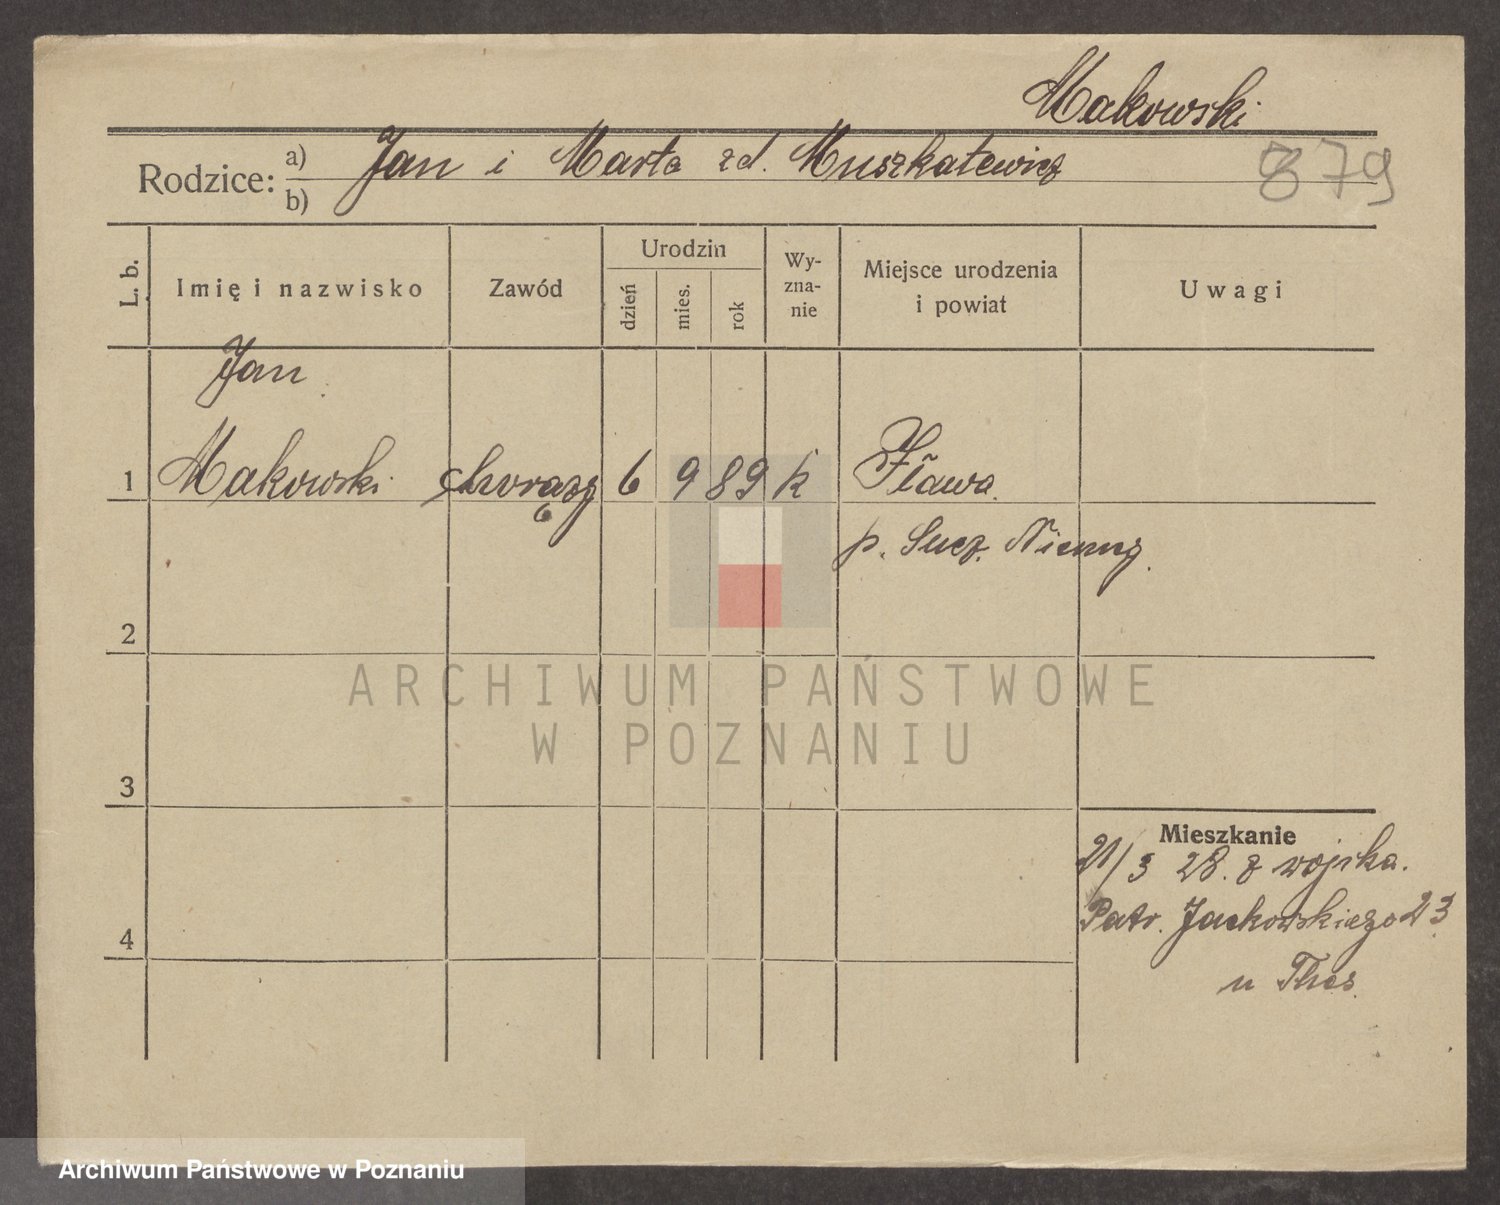 Makowski
Rodzice: a) Jan i Marta zd. Muszkatewicz
b)
879
L. b.
Imię i nazwisko
Zawód
Urodzin
dzień
mies.
rok
Wy-
zna-
nie
Miejsce urodzenia
i powiat
Uwagi
Jan
1 Makowski chorąży 6 9 89 k Iława
p. Susz. Niemcy.
2
ARCHIWUM PAŃSTWOWE
W POZNANIU
3
Mieszkanie
21/3 28. z wojska.
Patr. Jackowskiego 23
4
u Thes
Archiwum Państwowe w Poznaniu